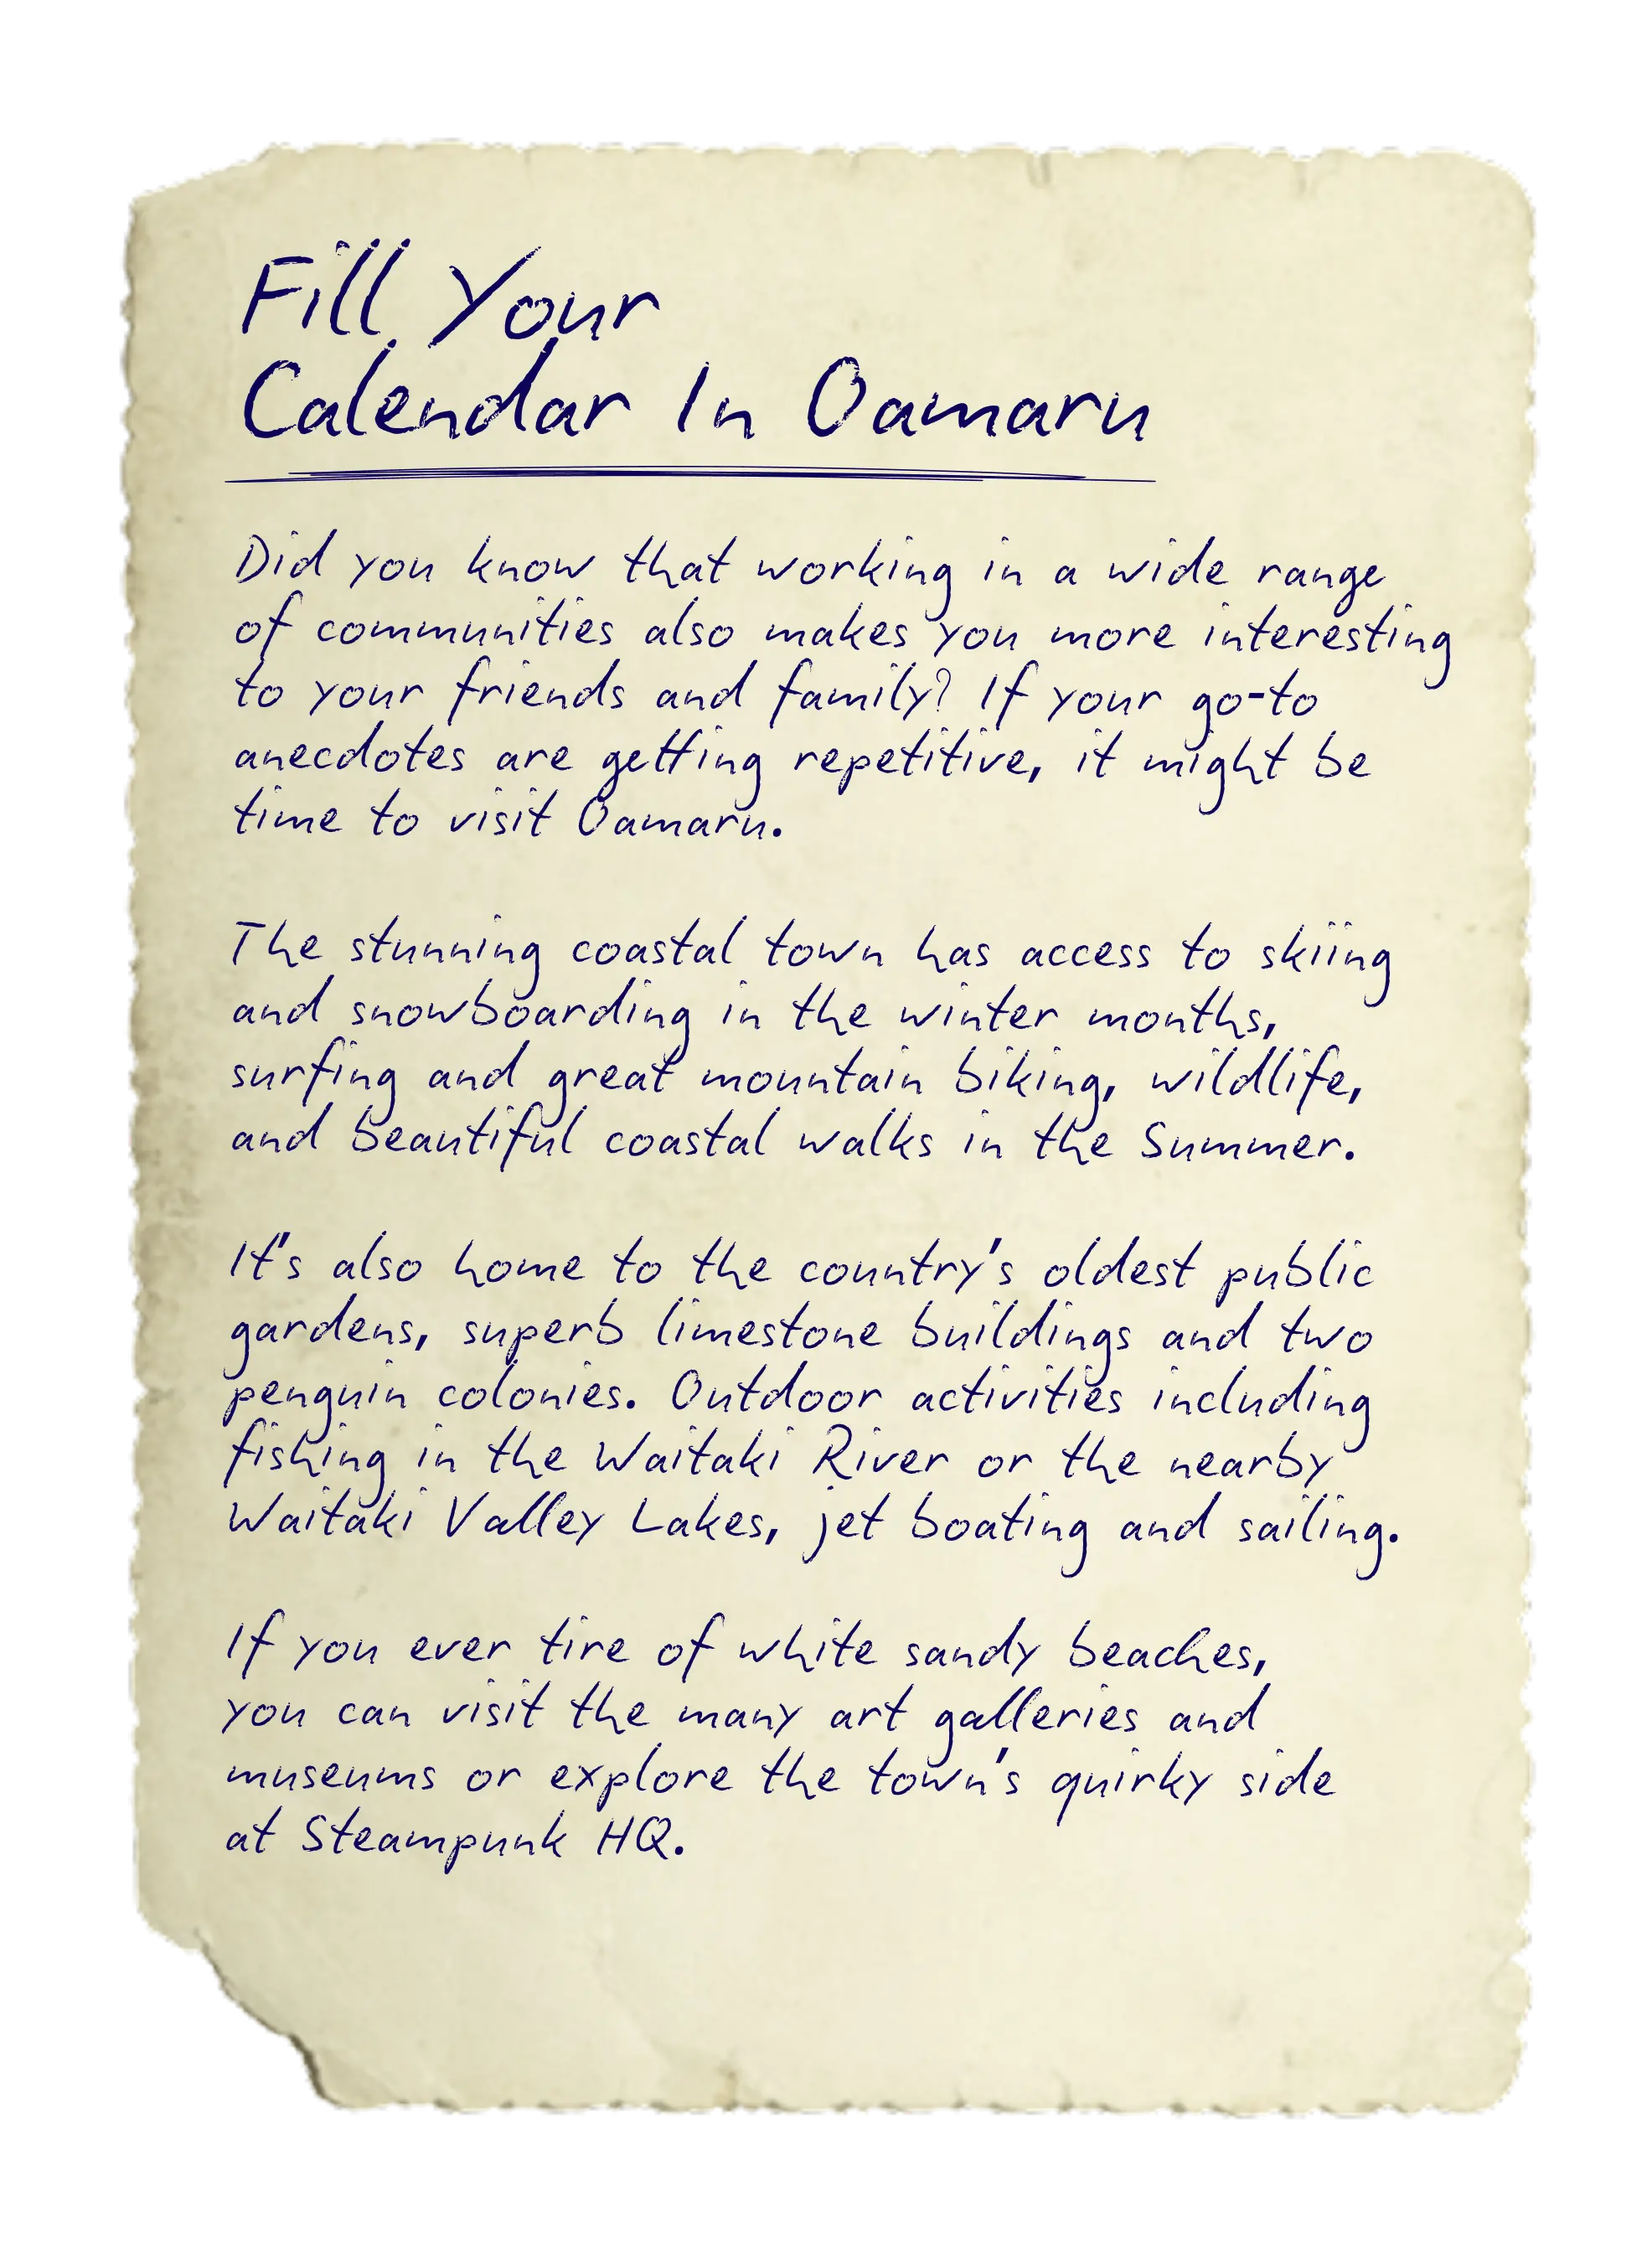 Fill Your
Calendar In Oamaru
Did you know that working in a wide range
of communities also makes you more interesting
to your friends and family? If your go-to
anecdotes are getting repetitive, it might be
time to visit Oamaru.
The stunning coastal town has access to skiing
and snowboarding in the winter months,
surfing and great mountain biking, wildlife,
and beautiful coastal walks in the Summer.
It's also home to the country's oldest public
gardens, superb limestone buildings and two
penguin colonies. Outdoor activities including
fishing in the Waitaki River or the nearby
Waitaki Valley Lakes, jet boating and sailing.
If you ever tire of white sandy beaches,
you can visit the many art galleries and
museums or explore the town's quirky side
at Steampunk HQ.